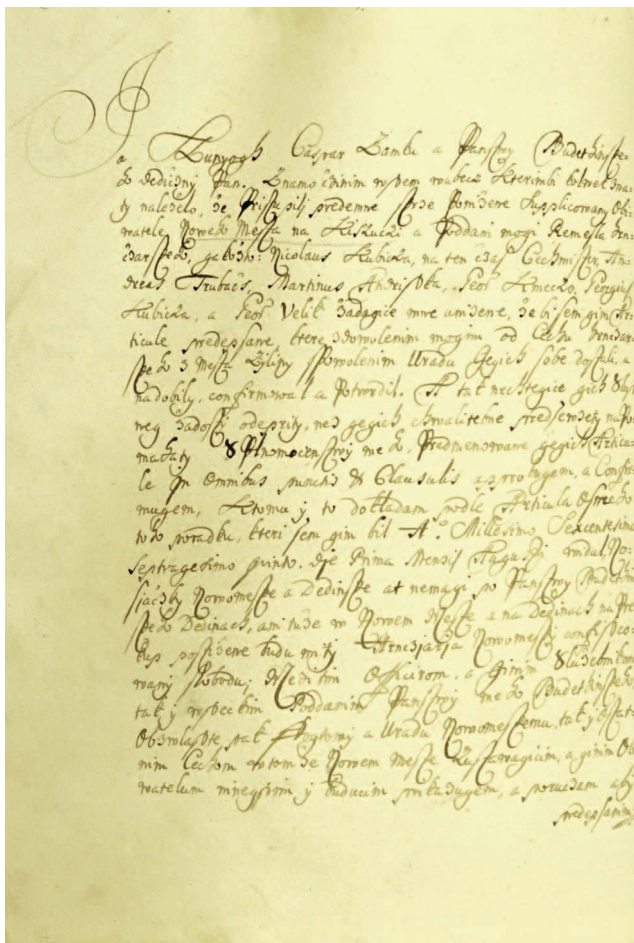 Ja Sunyogh Caspar Zambu a Panstwy Budethinske-
ho dedicžny Pan. Znamo cžinim wssem wubecz kterimbi kolwek zna-
ty naležalo, že Pristupili predemne skrze ponižene supplicowany Obi-
watele Noweho Mesta na Kiszuczi a Poddani mogi Remesla hrn-
cžarskeho, gakožto: Nicolaus Kubicža, na ten cžas Cechmister, An-
dreas Trubacž, Martinus Andrisstka, Geor Kmeczo, Georgius
Kubicža, a Geor Velik žadagice mne unižene, že bi sem gim Ar-
ticule predepsane, ktere z dowolenim mogim od Cechu hrncžar-
skeho z Mesta Žiliny s powolenim Uradu gegich sobe dostali, a
nadobily, confirmowal a potwrdil. A tak nechtegice gich
neg žadosti odeprity, než gegich chwalitebne predsewzety napo-
mahaty plnomocenstwy meho, Predmenowane gegich Articu-
le In Omnibus punctis et Clausulis approbugem, a Confir-
mugem, Ktomu y to dokladam podle Articula
toho poradku, kteri sem gim bil Ao. Millesimo Sexcentesimo
Septuagesimo quinto. Die Prima Mensis Augusti widal
Nowomeske a Dedinske at nemagi po Panstwy Budethin-
skeho Dedinach, ani tuze w Nowem Meste a na Dedinach
budu mity Nowomesti
slobodu; Wssectkim Officirom, a ginim Služebnikom
tak y wssectkim Poddanim Panstwy meho Budethinskeho
Obzwlasste pak Fogtowy a Uradu Nowomeskemu, tak y
nim Cechom w tomže Nowem Meste Zustawagicim, a ginim Ob-
watelum ninegssim y buducim prikazugem, a porucžam aby
predepsanim